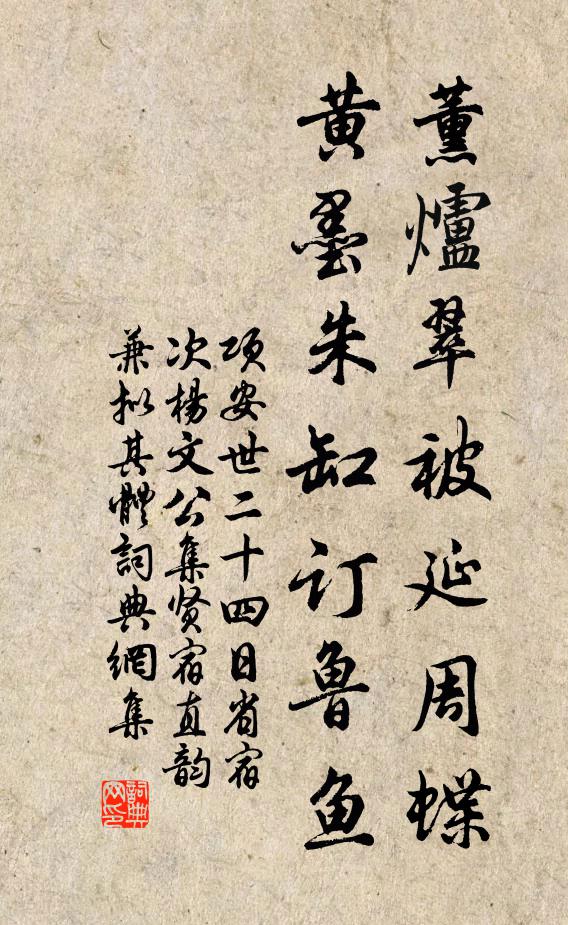 薰爐翠被延周蝶
黄墨朱缸订魯鱼
项安世二十四日省宿
次楊文公集贤宿直韵
兼拟其體詞典網集
詞典
网印